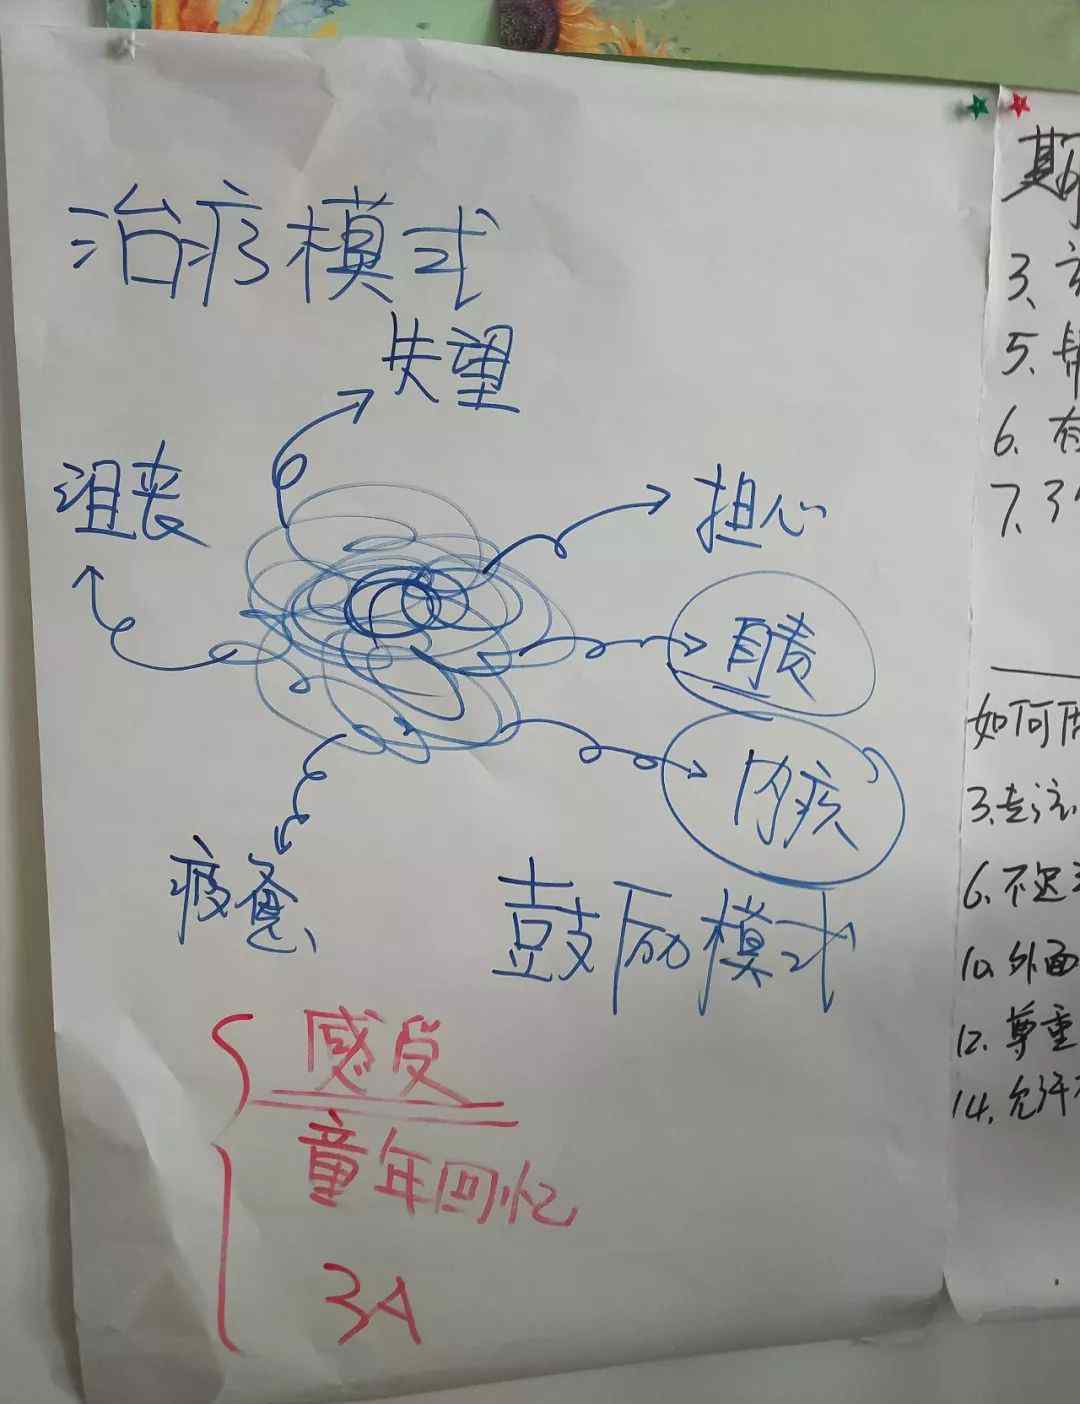 治疗模式
失望
沮丧
担心
自责
内疚
疲惫
鼓励模式
感受
童年回忆
3A
期
3、
5、
6、有
7、3个
如何
3、专注
6、不迟
10、外面
12、尊重
14、允许